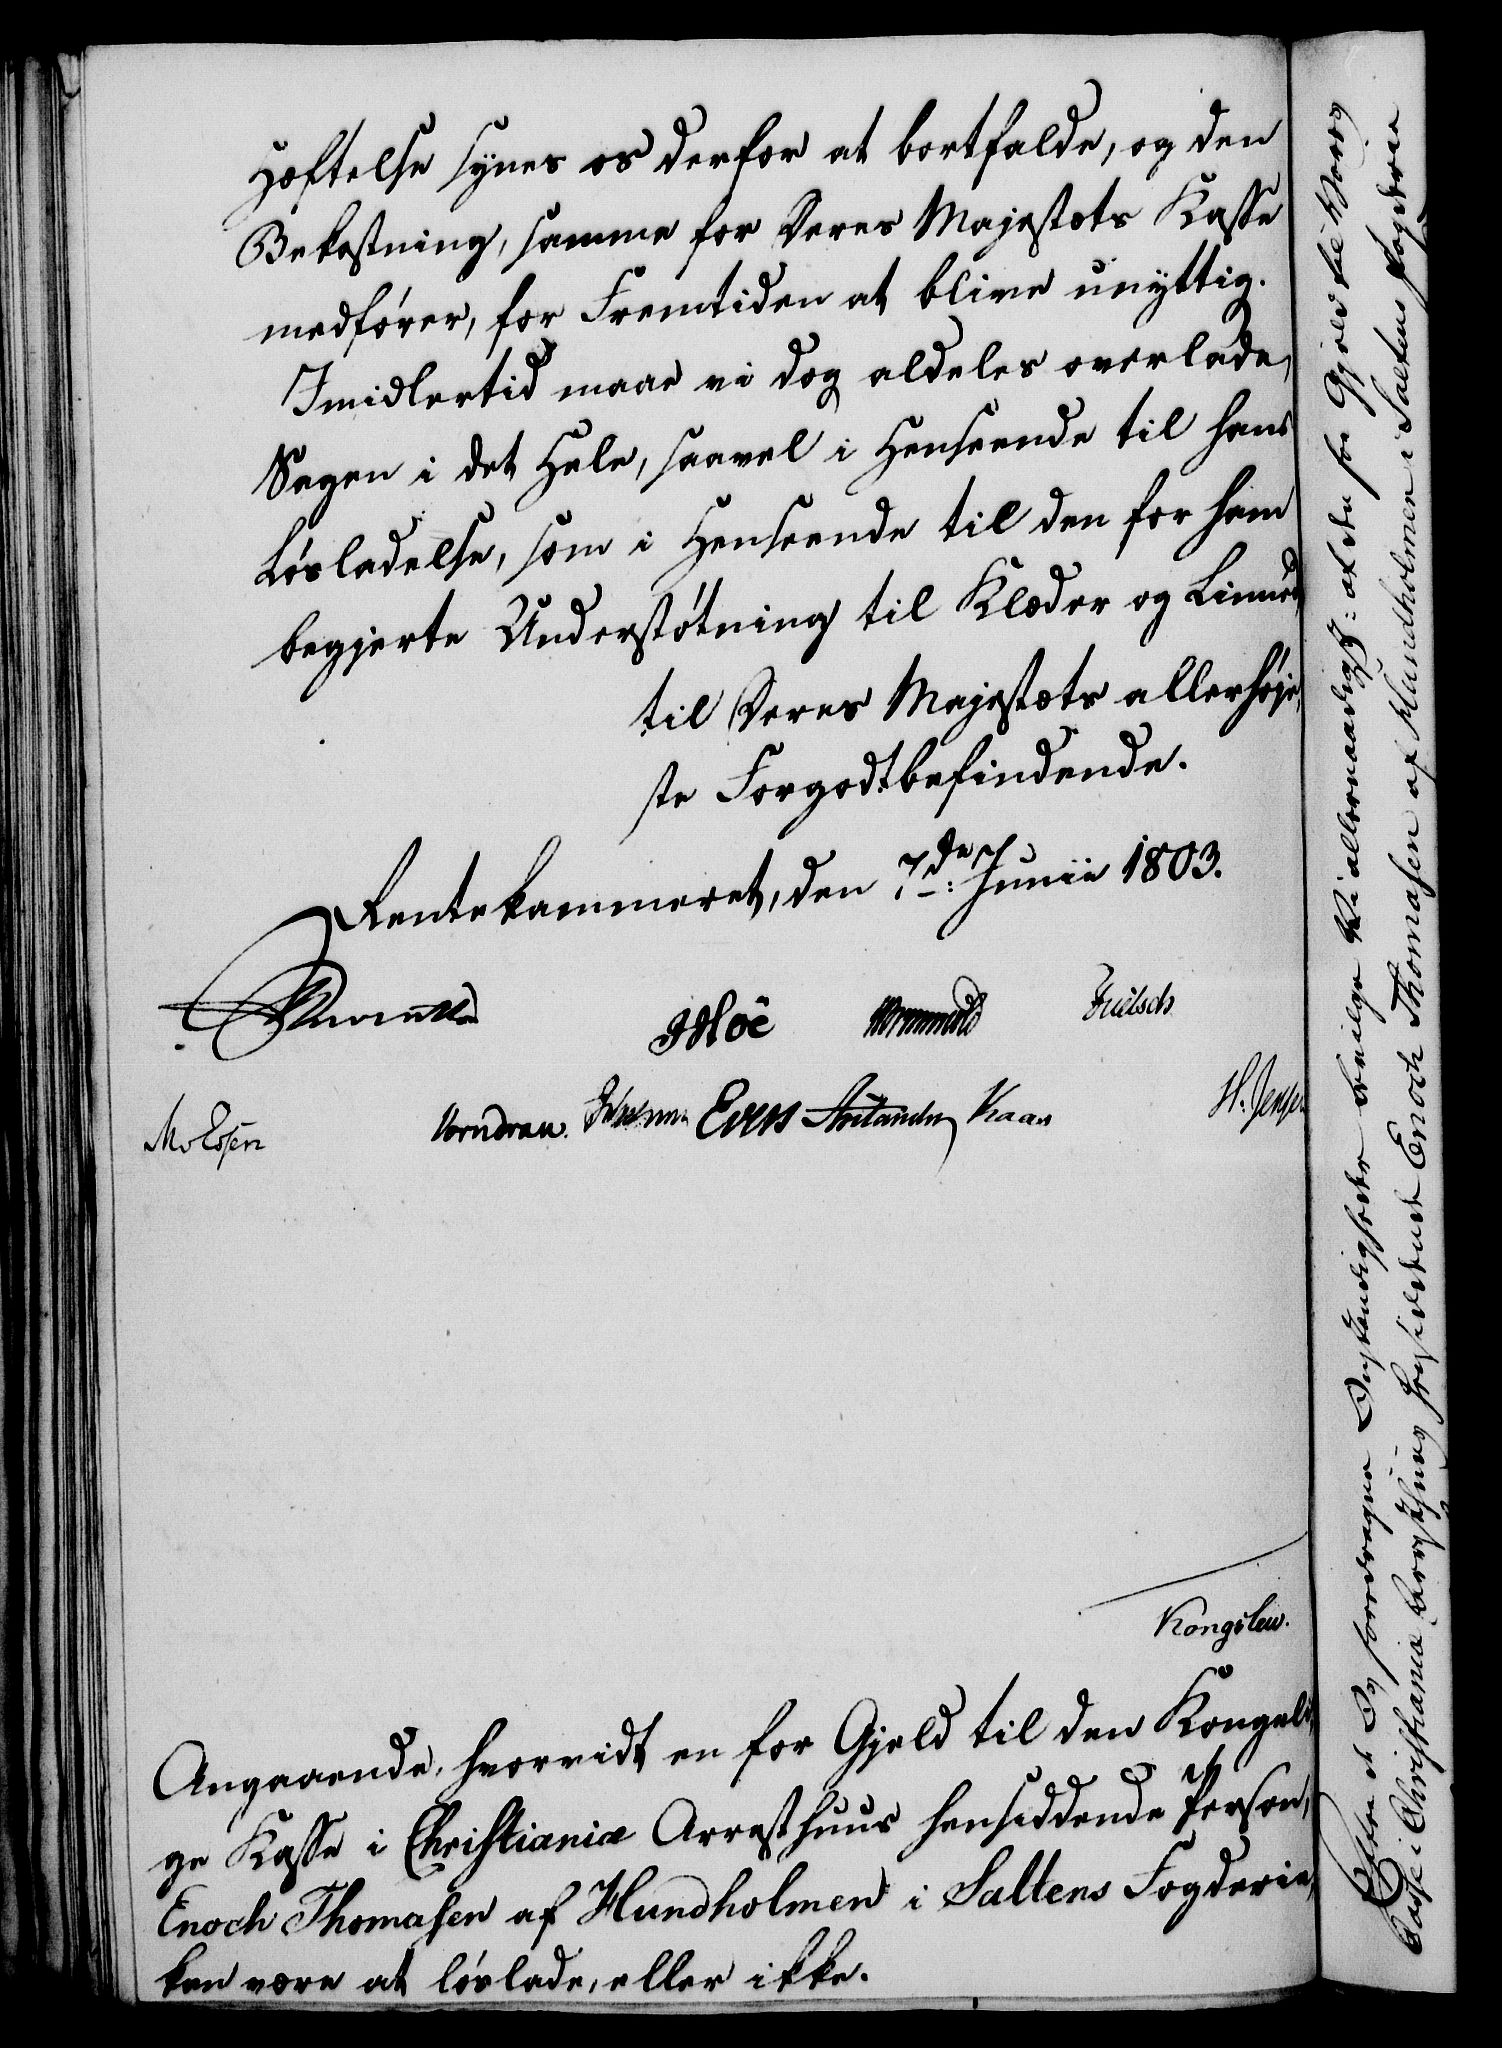 Hæftelse synes os derfor at bortfalde, og den
Bekostning, samme for Deres Majestæts Kasse
medfører, for Fremtiden at blive unyttig.
Imidlertid maae vi dog aldeles overlade,
Sagen i det Hele, saavel i Henseende til hans
Løsladelse, som i Henseende til den for ham
begjerte Understøtning til Klæder og Linned
til Deres Majestæts allerhøje,
ste Forgodtbefindende.
Rentekammeret, den 7de: Junii 1803.
Hoë Wormskiold Frielsch
MvEssen Vorndran. Evers Kaas H: Jensen
Kongslew.
Angaaende, hvorvidt en for Gjeld til den Kongeli,
ge Kasse i Christiania Arresthuus hensiddende Person,
Enoch Thomasen af Hundholmen i Saltens Fogderie,
kan være at løslade, eller ikke.
Efter de Os foredragne Omstændigheder bevilge Vi allernaadigst: at den for Gjeld til Vores
Casse i Christiania hensiddende Enoch Thomasen af Hundholmen i Saltens Fogderie